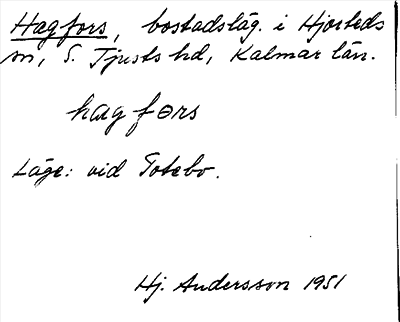 Hagfors, bostadsläg. i Hjorteds
sn, S. Tjusts hd, Kalmar län.
hagførs
Läge: vid Totebo.
Hj. Andersson 1951